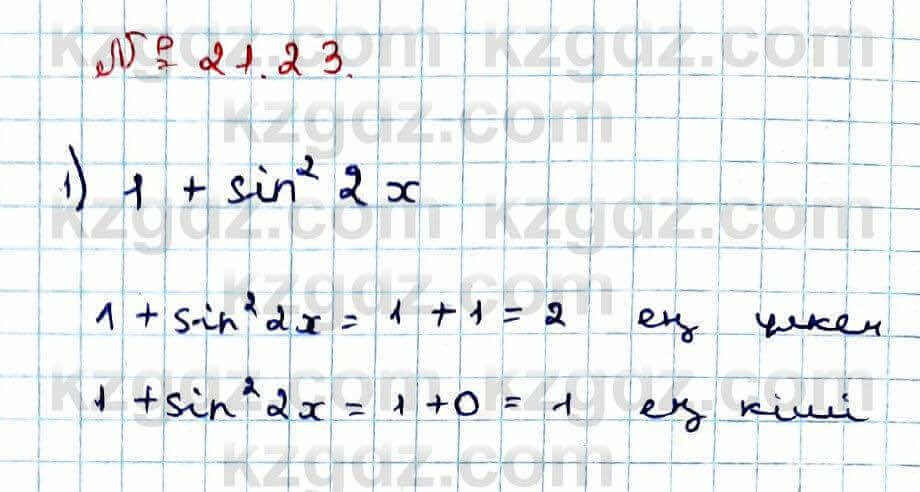 № 21.23.
1) 1 + sin² 2x
1 + sin² 2x = 1 + 1 = 2 ең үлкен
1 + sin² 2x = 1 + 0 = 1 ең кіші
kzgdz.com kzgdz.com
kzgdz.com
kzgdz.com kzgdz.com
kzgdz.com
kzgdz.com kzgdz.com
kzgdz.com